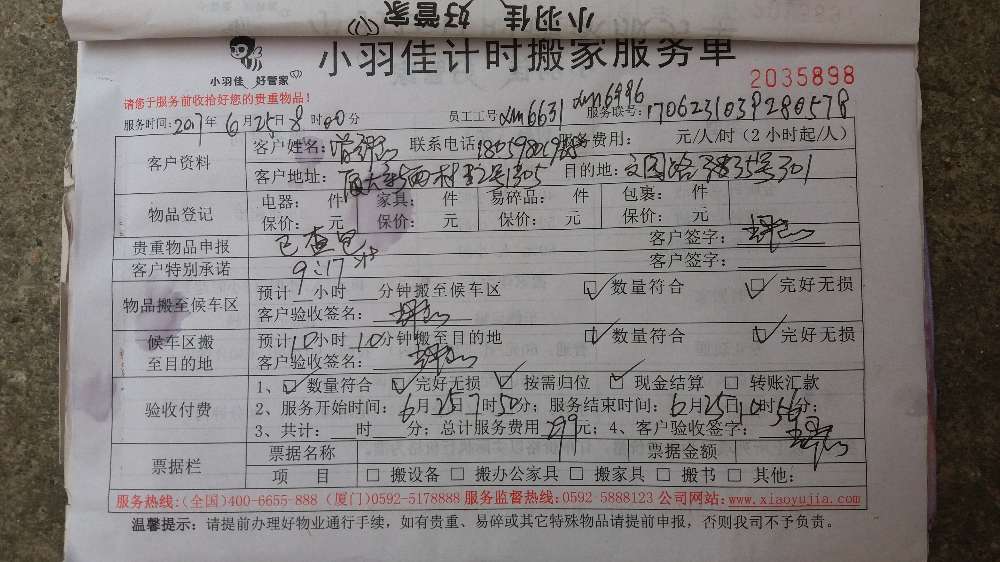 小羽佳 好管家
小羽佳计时搬家服务单
小羽佳 好管家
2035898
请您于服务前收拾好您的贵重物品!
服务时间:2017年6月25日8时00分 员工工号 xm6631 xm6996 服务联号:1706231039280578
客户资料
客户姓名: 联系电话: 服务费用: 元/人/时(2小时起/人)
客户地址: 目的地:文园路 35号301
物品登记
电器: 件 家具: 件 易碎品: 件 包裹: 件
保价: 元 保价: 元 保价: 元 保价: 元
贵重物品申报 已查见 客户签字:
客户特别承诺 9:17 客户签字:
物品搬至候车区
预计__小时___分钟搬至候车区 ☑数量符合 ☑完好无损
客户验收签名:
候车区搬至目的地
预计10小时10分钟搬至目的地 ☑数量符合 ☑完好无损
客户验收签名:
验收付费
1、☑数量符合 ☑完好无损 ☑按需归位 ☑现金结算 □转账汇款
2、服务开始时间:6月25日7时50分;服务结束时间:6月25日10时56分;
3、共计:___时___分;总计服务费用 元;4、客户验收签字:
票据栏
票据名称 票据金额
项 目 □搬设备 □搬办公家具 □搬家具 □搬书 □其他:
服务热线:(全国)400-6655-888 (厦门)0592-5178888 服务监督热线:0592-5888123 公司网站:www.xiaoyujia.com
温馨提示:请提前办理好物业通行手续,如有贵重、易碎或其它特殊物品请提前申报,否则我司不予负责。